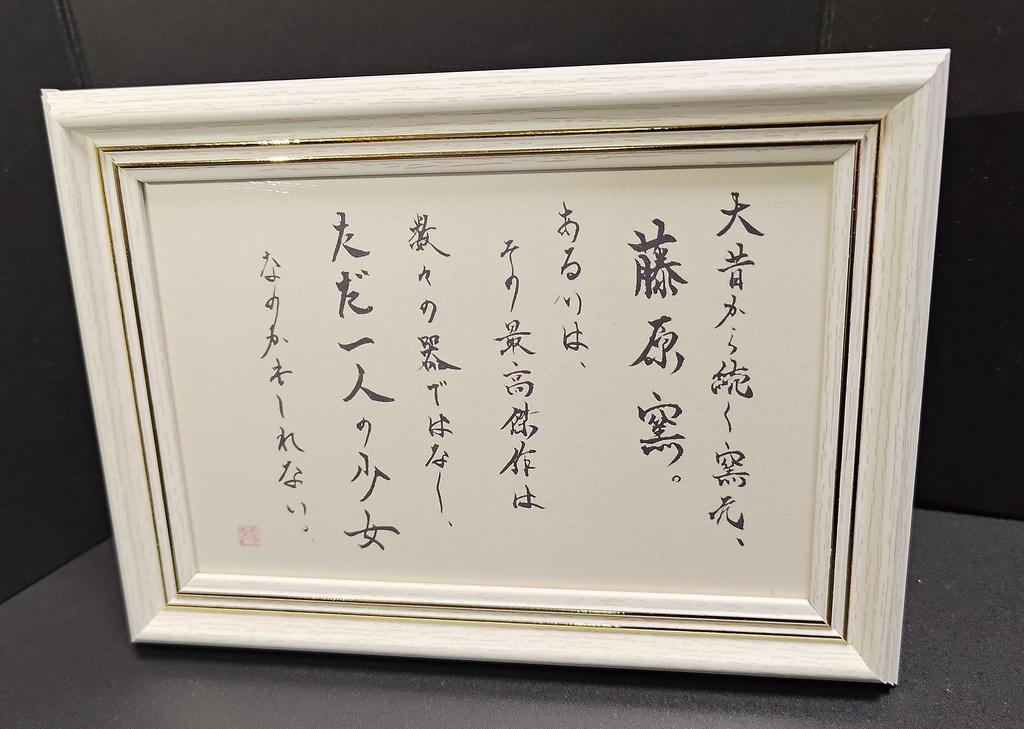 大昔から続く窯元、
藤原窯。
あるいは、
その最高傑作は
数々の器ではなく、
ただ一人の少女
なのかもしれない。